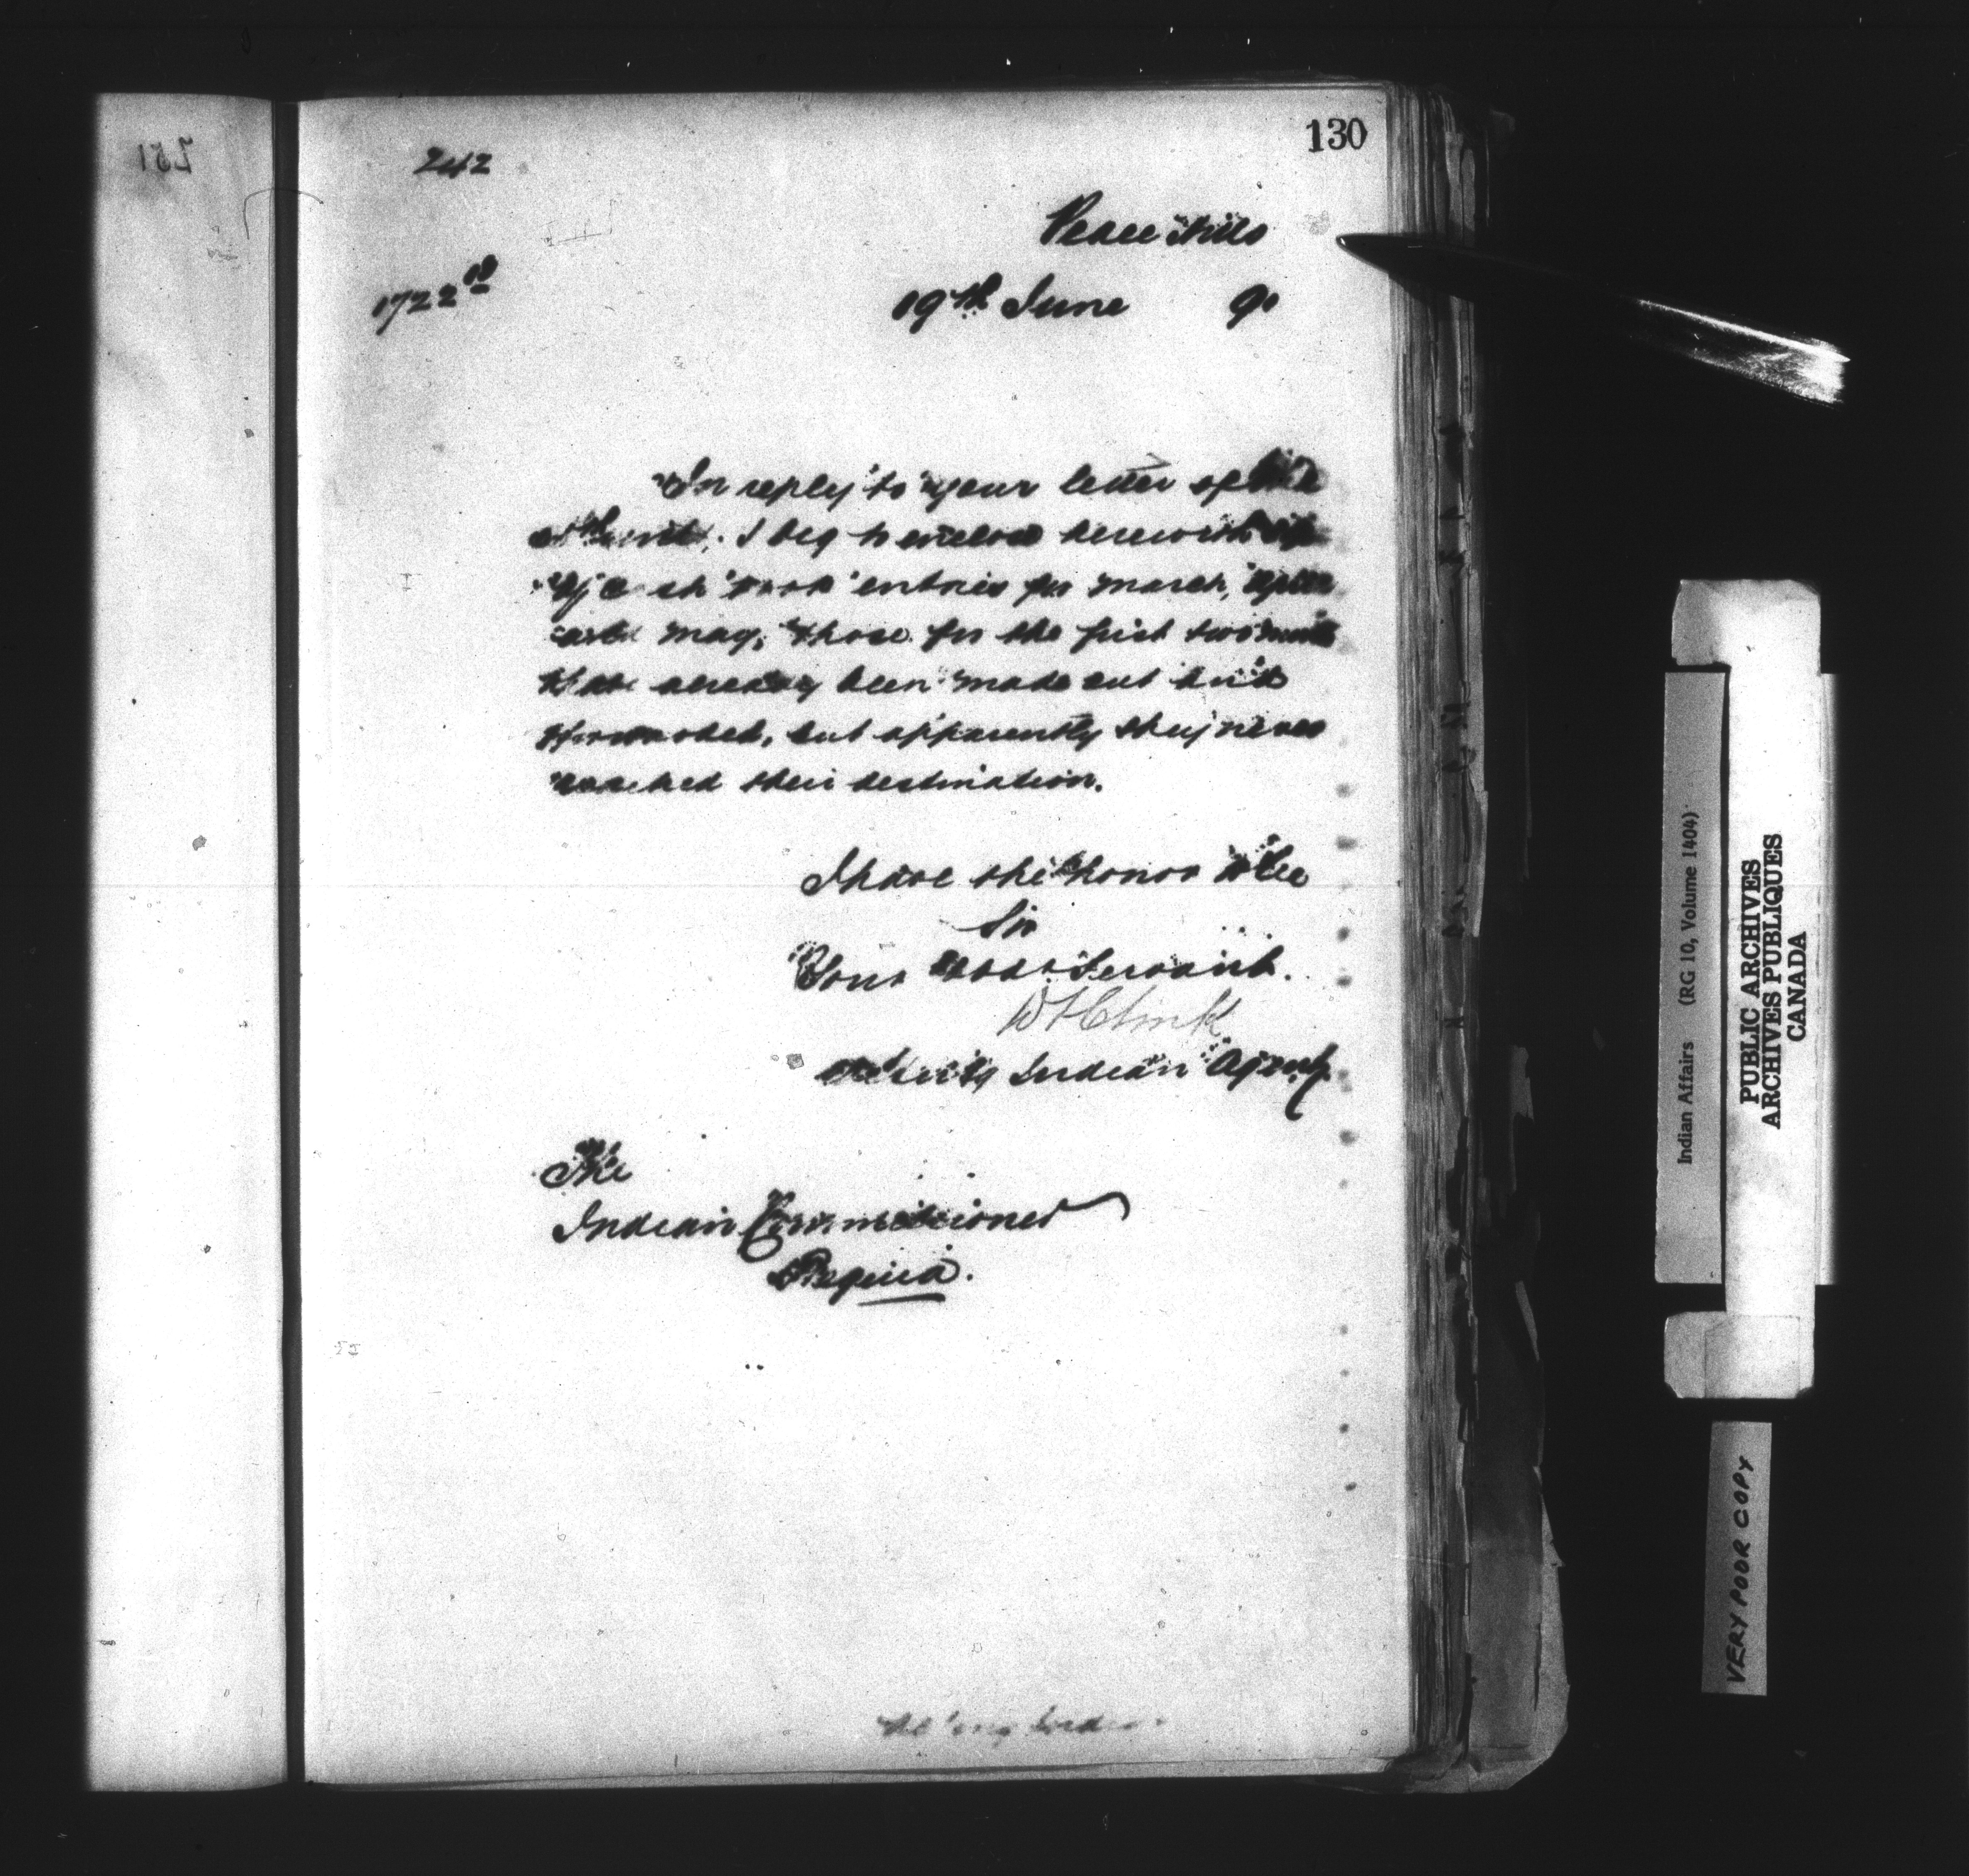 130
242
Peace Hills
1722
19th June 91
In reply to your letter of the
inst. I beg to enclose herewith
of Cash Book entries for March, April
and May, those for the first two months
have already been made out and
forwarded, but apparently they never
reached their destination.
I have the honor to be
Sir
Your Obdt Servant.
Acting Indian Agent.
The
Indian Commissioner
Regina.
251
Indian Affairs (RG 10, Volume 1404)
PUBLIC ARCHIVES
ARCHIVES PUBLIQUES
CANADA
VERY POOR COPY